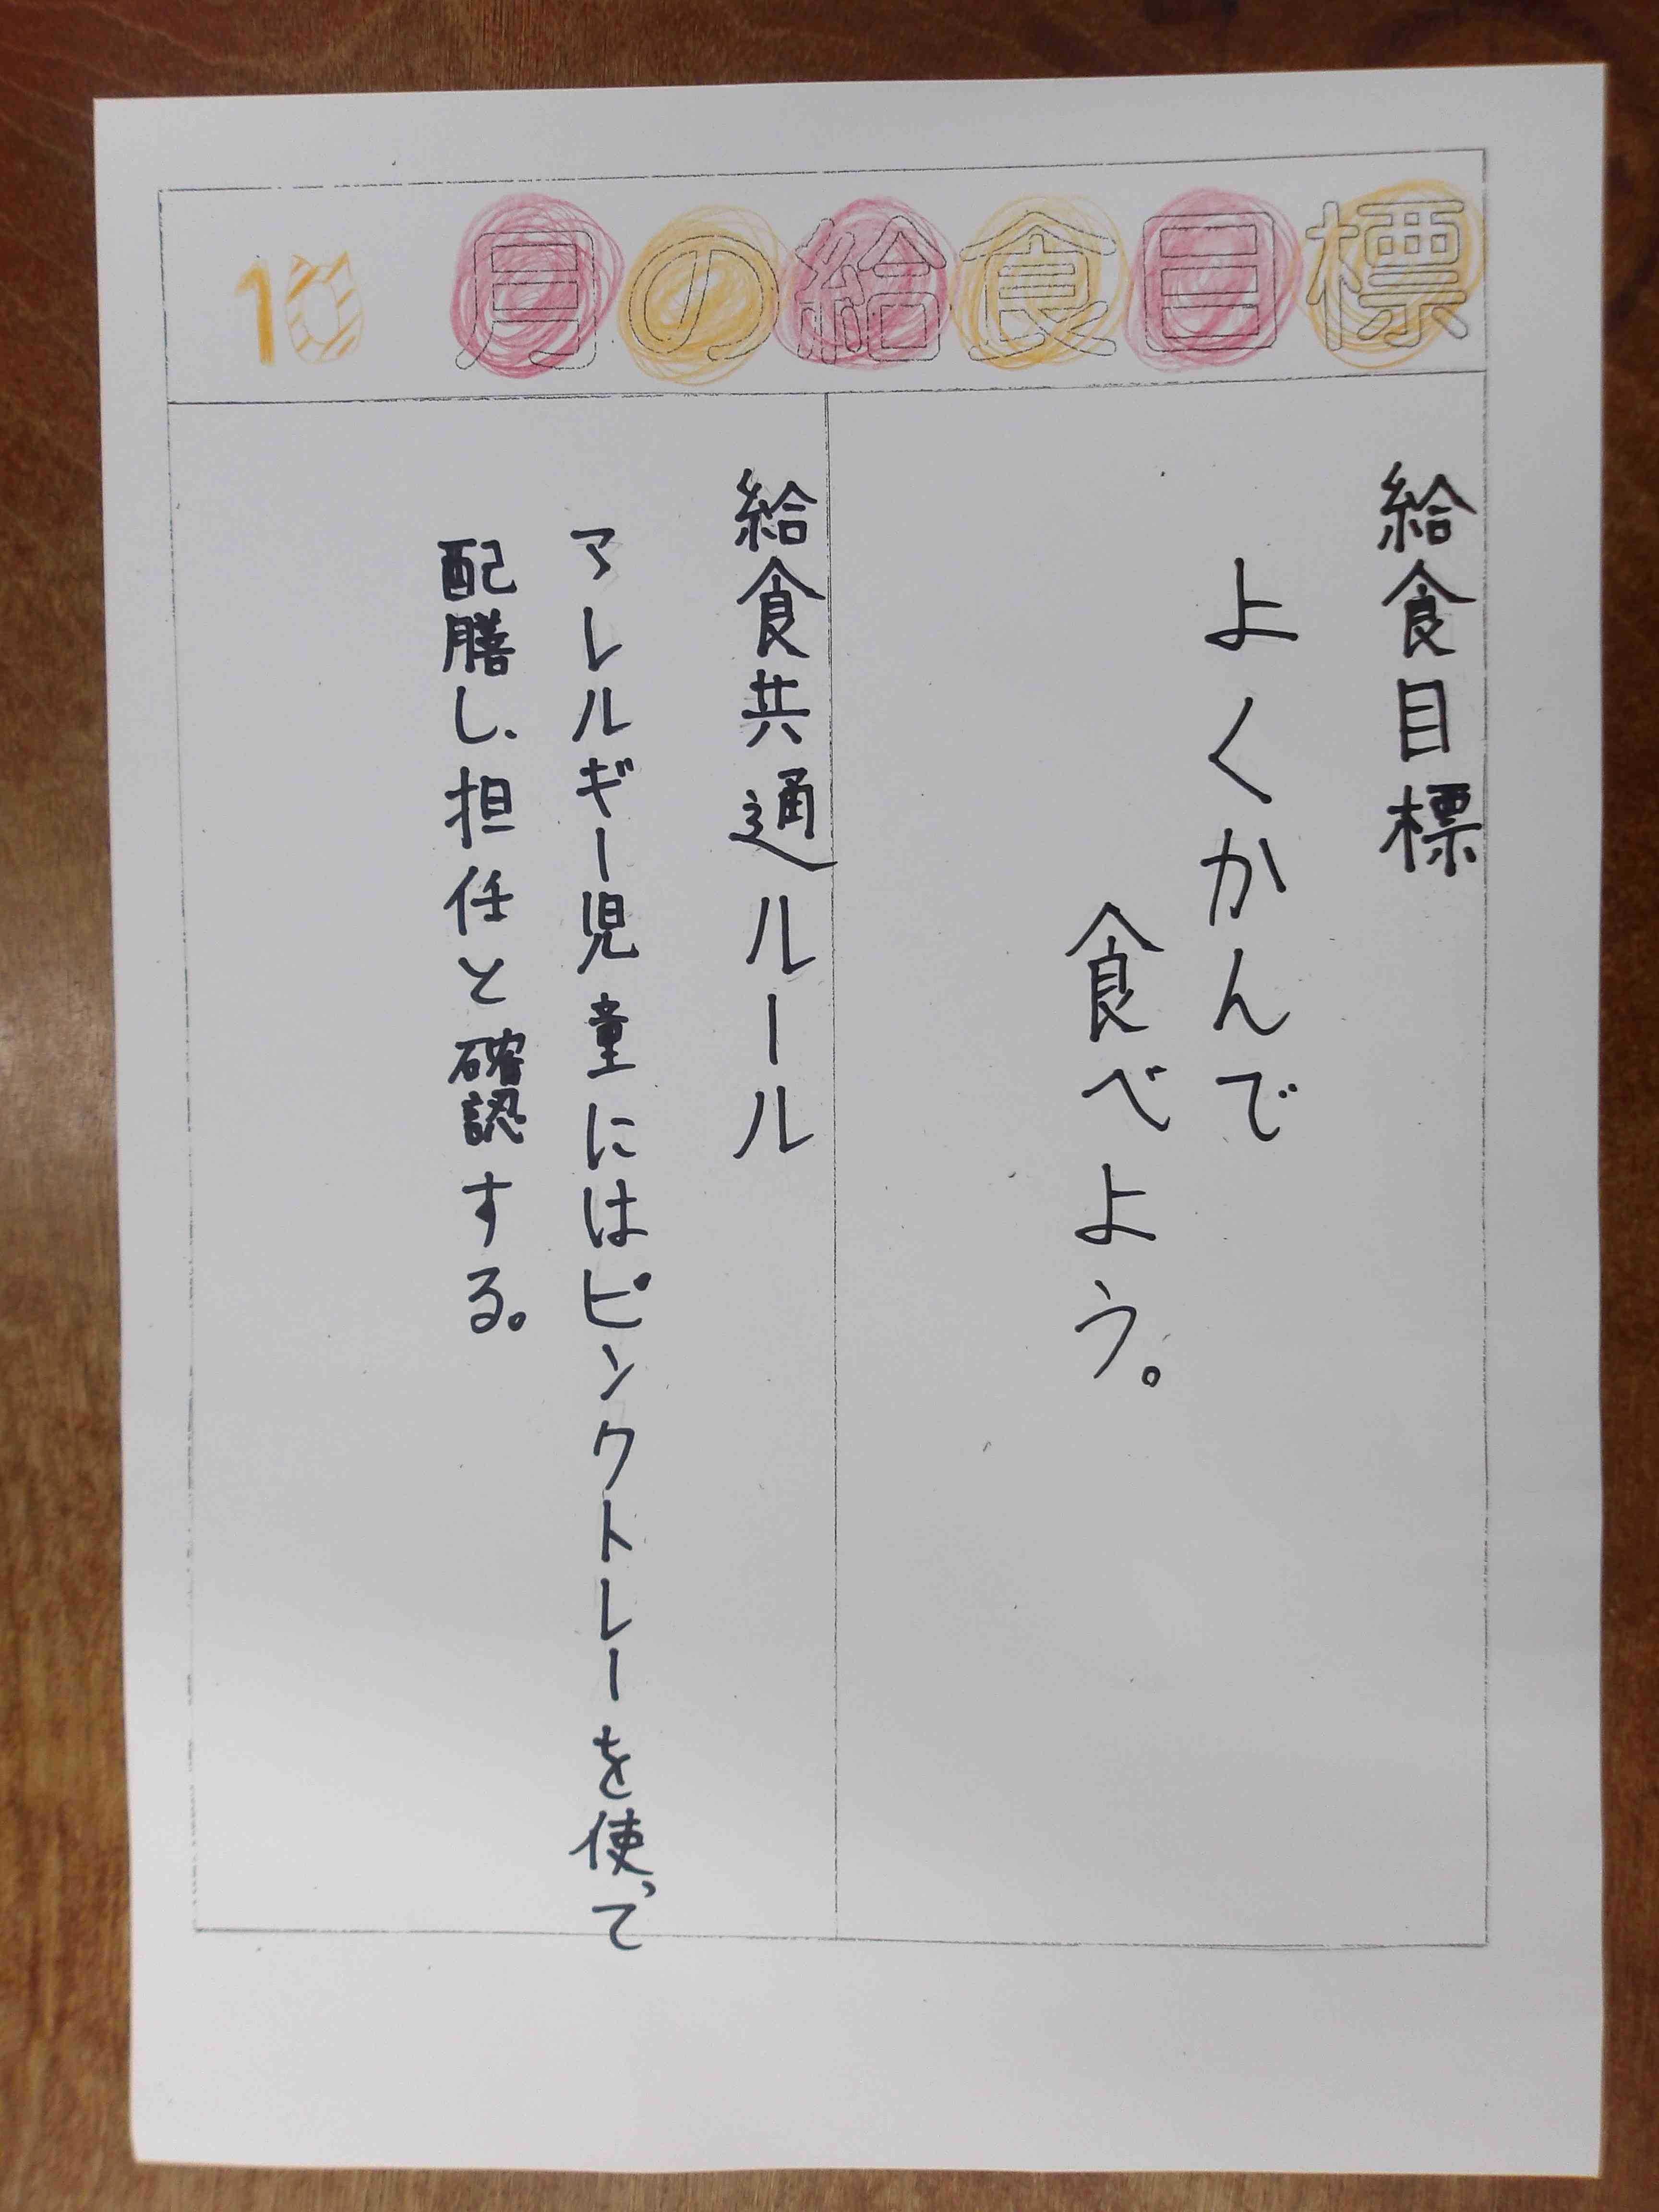 10月の給食目標
給食目標
よくかんで
食べよう。
給食共通ルール
アレルギー児童にはピンクトレーを使って
配膳し、担任と確認する。